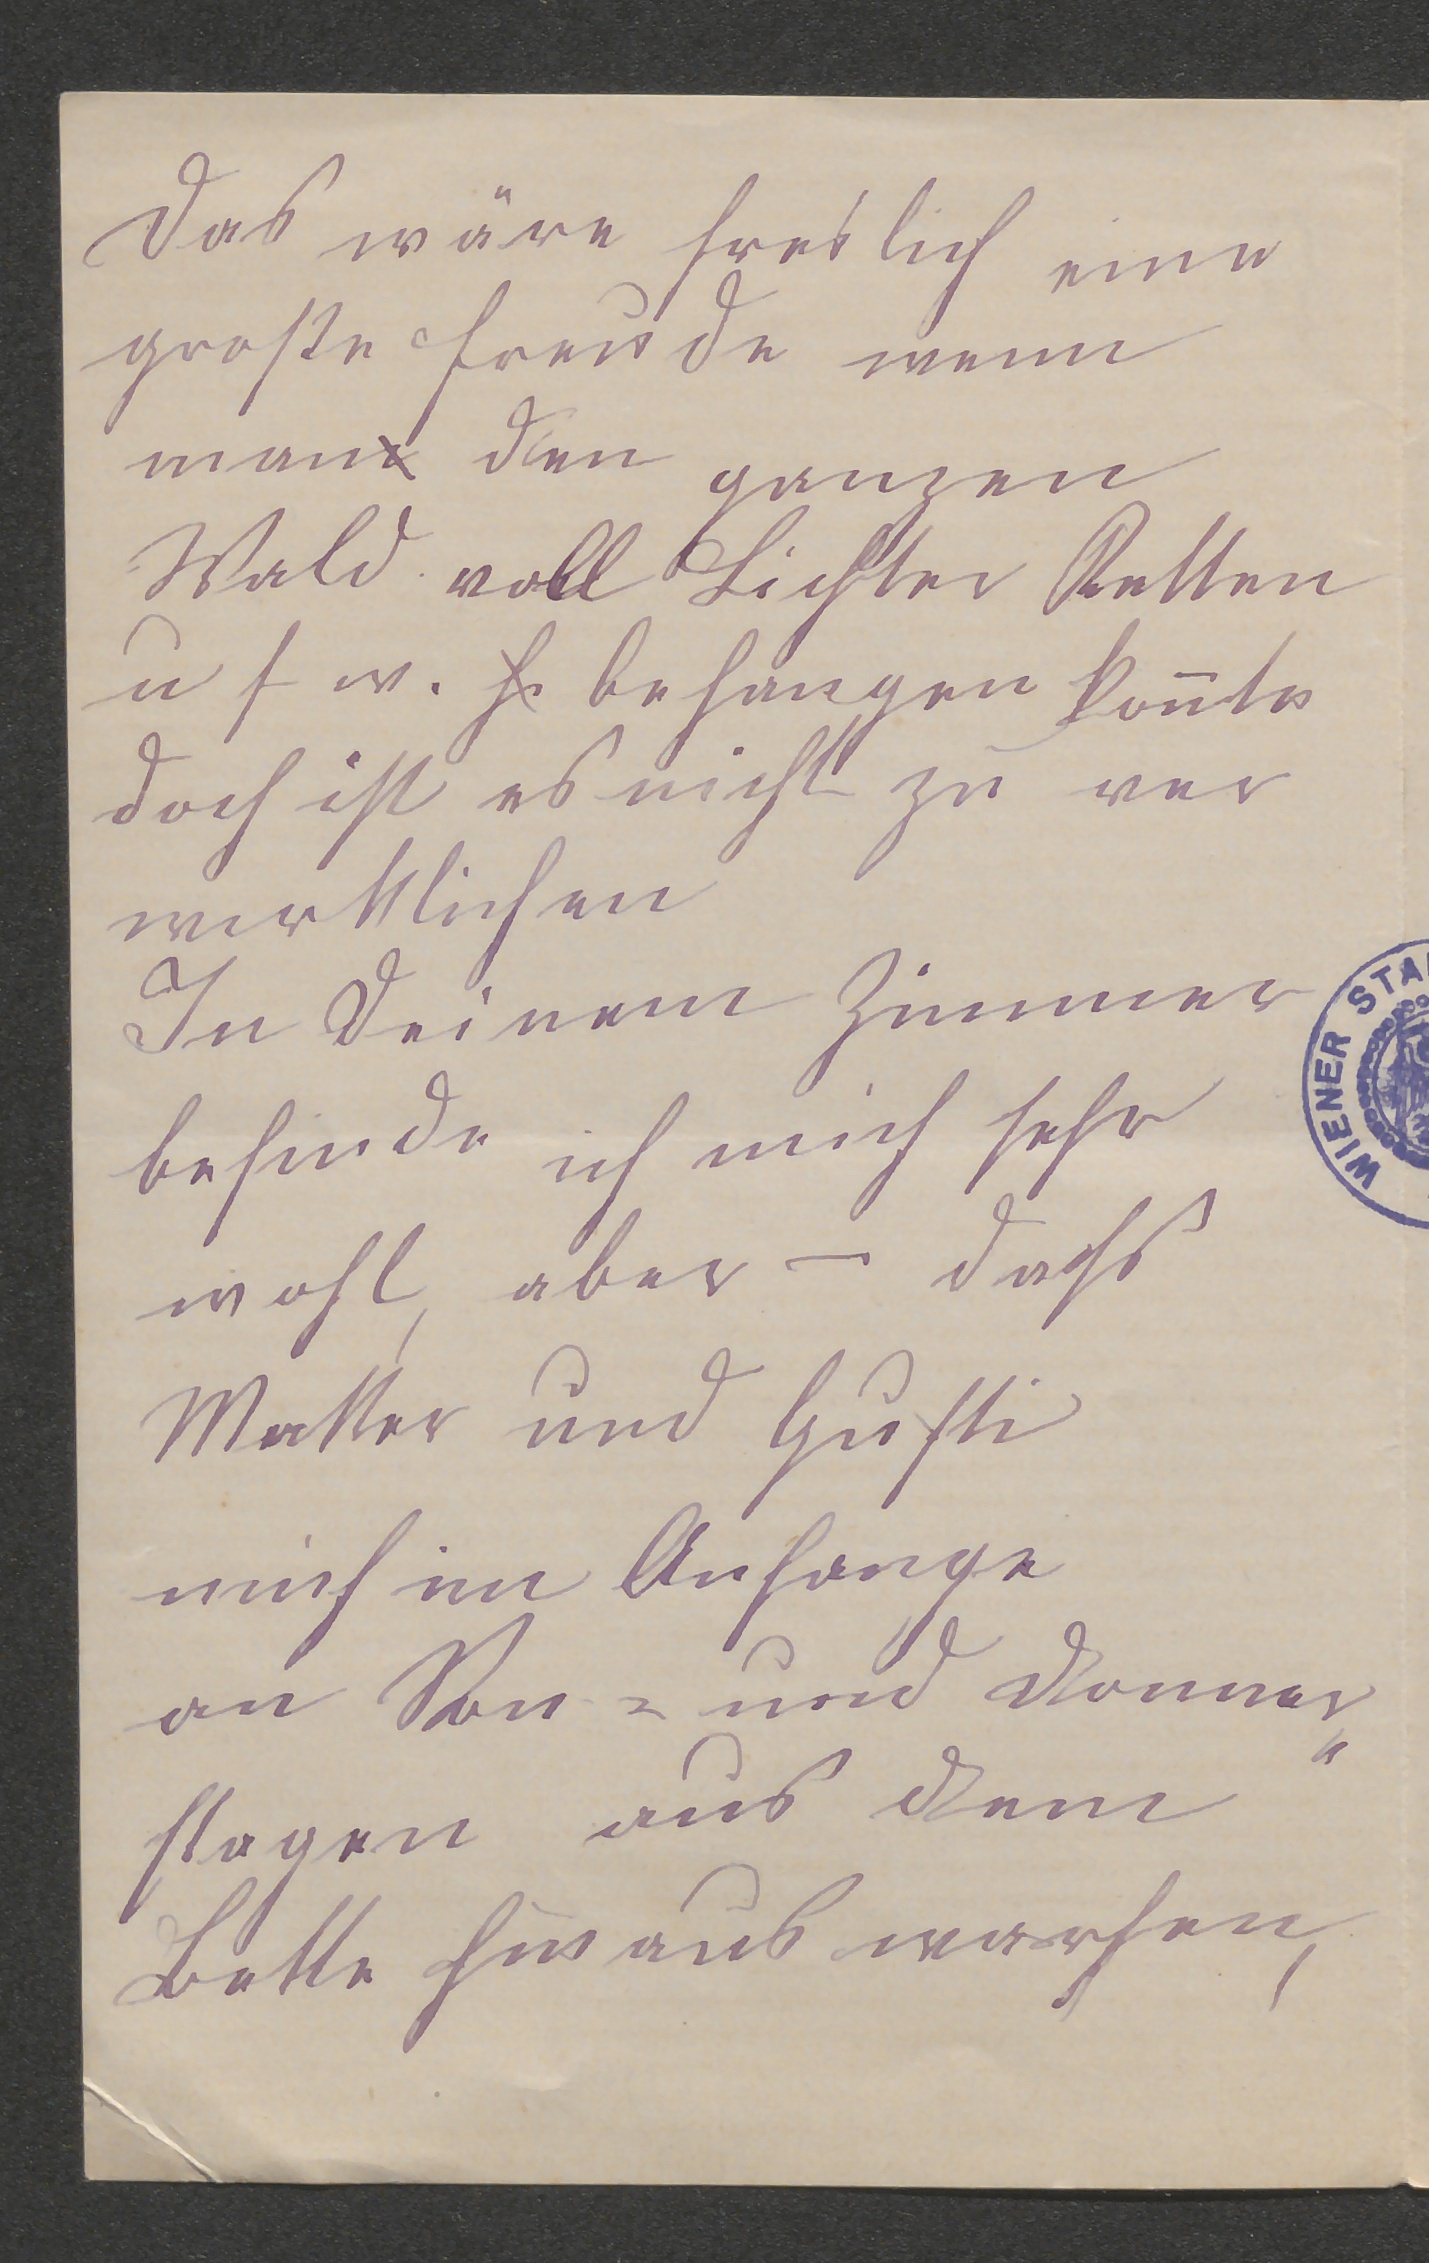 Das wäre freilich eine
große Freude wenn
man den ganzen
Wald voll Lichter Ketten
u s w. behangen kon̄te
doch ist es nicht zu ver
wirklichen
In Deinem Zimmer
befinde ich mich sehr
wohl, aber — dass
Mutter und Gusti
mich im Anfange
an Son= und Donner„
stagen aus dem
Bette hinaus warfen,
WIENER STA